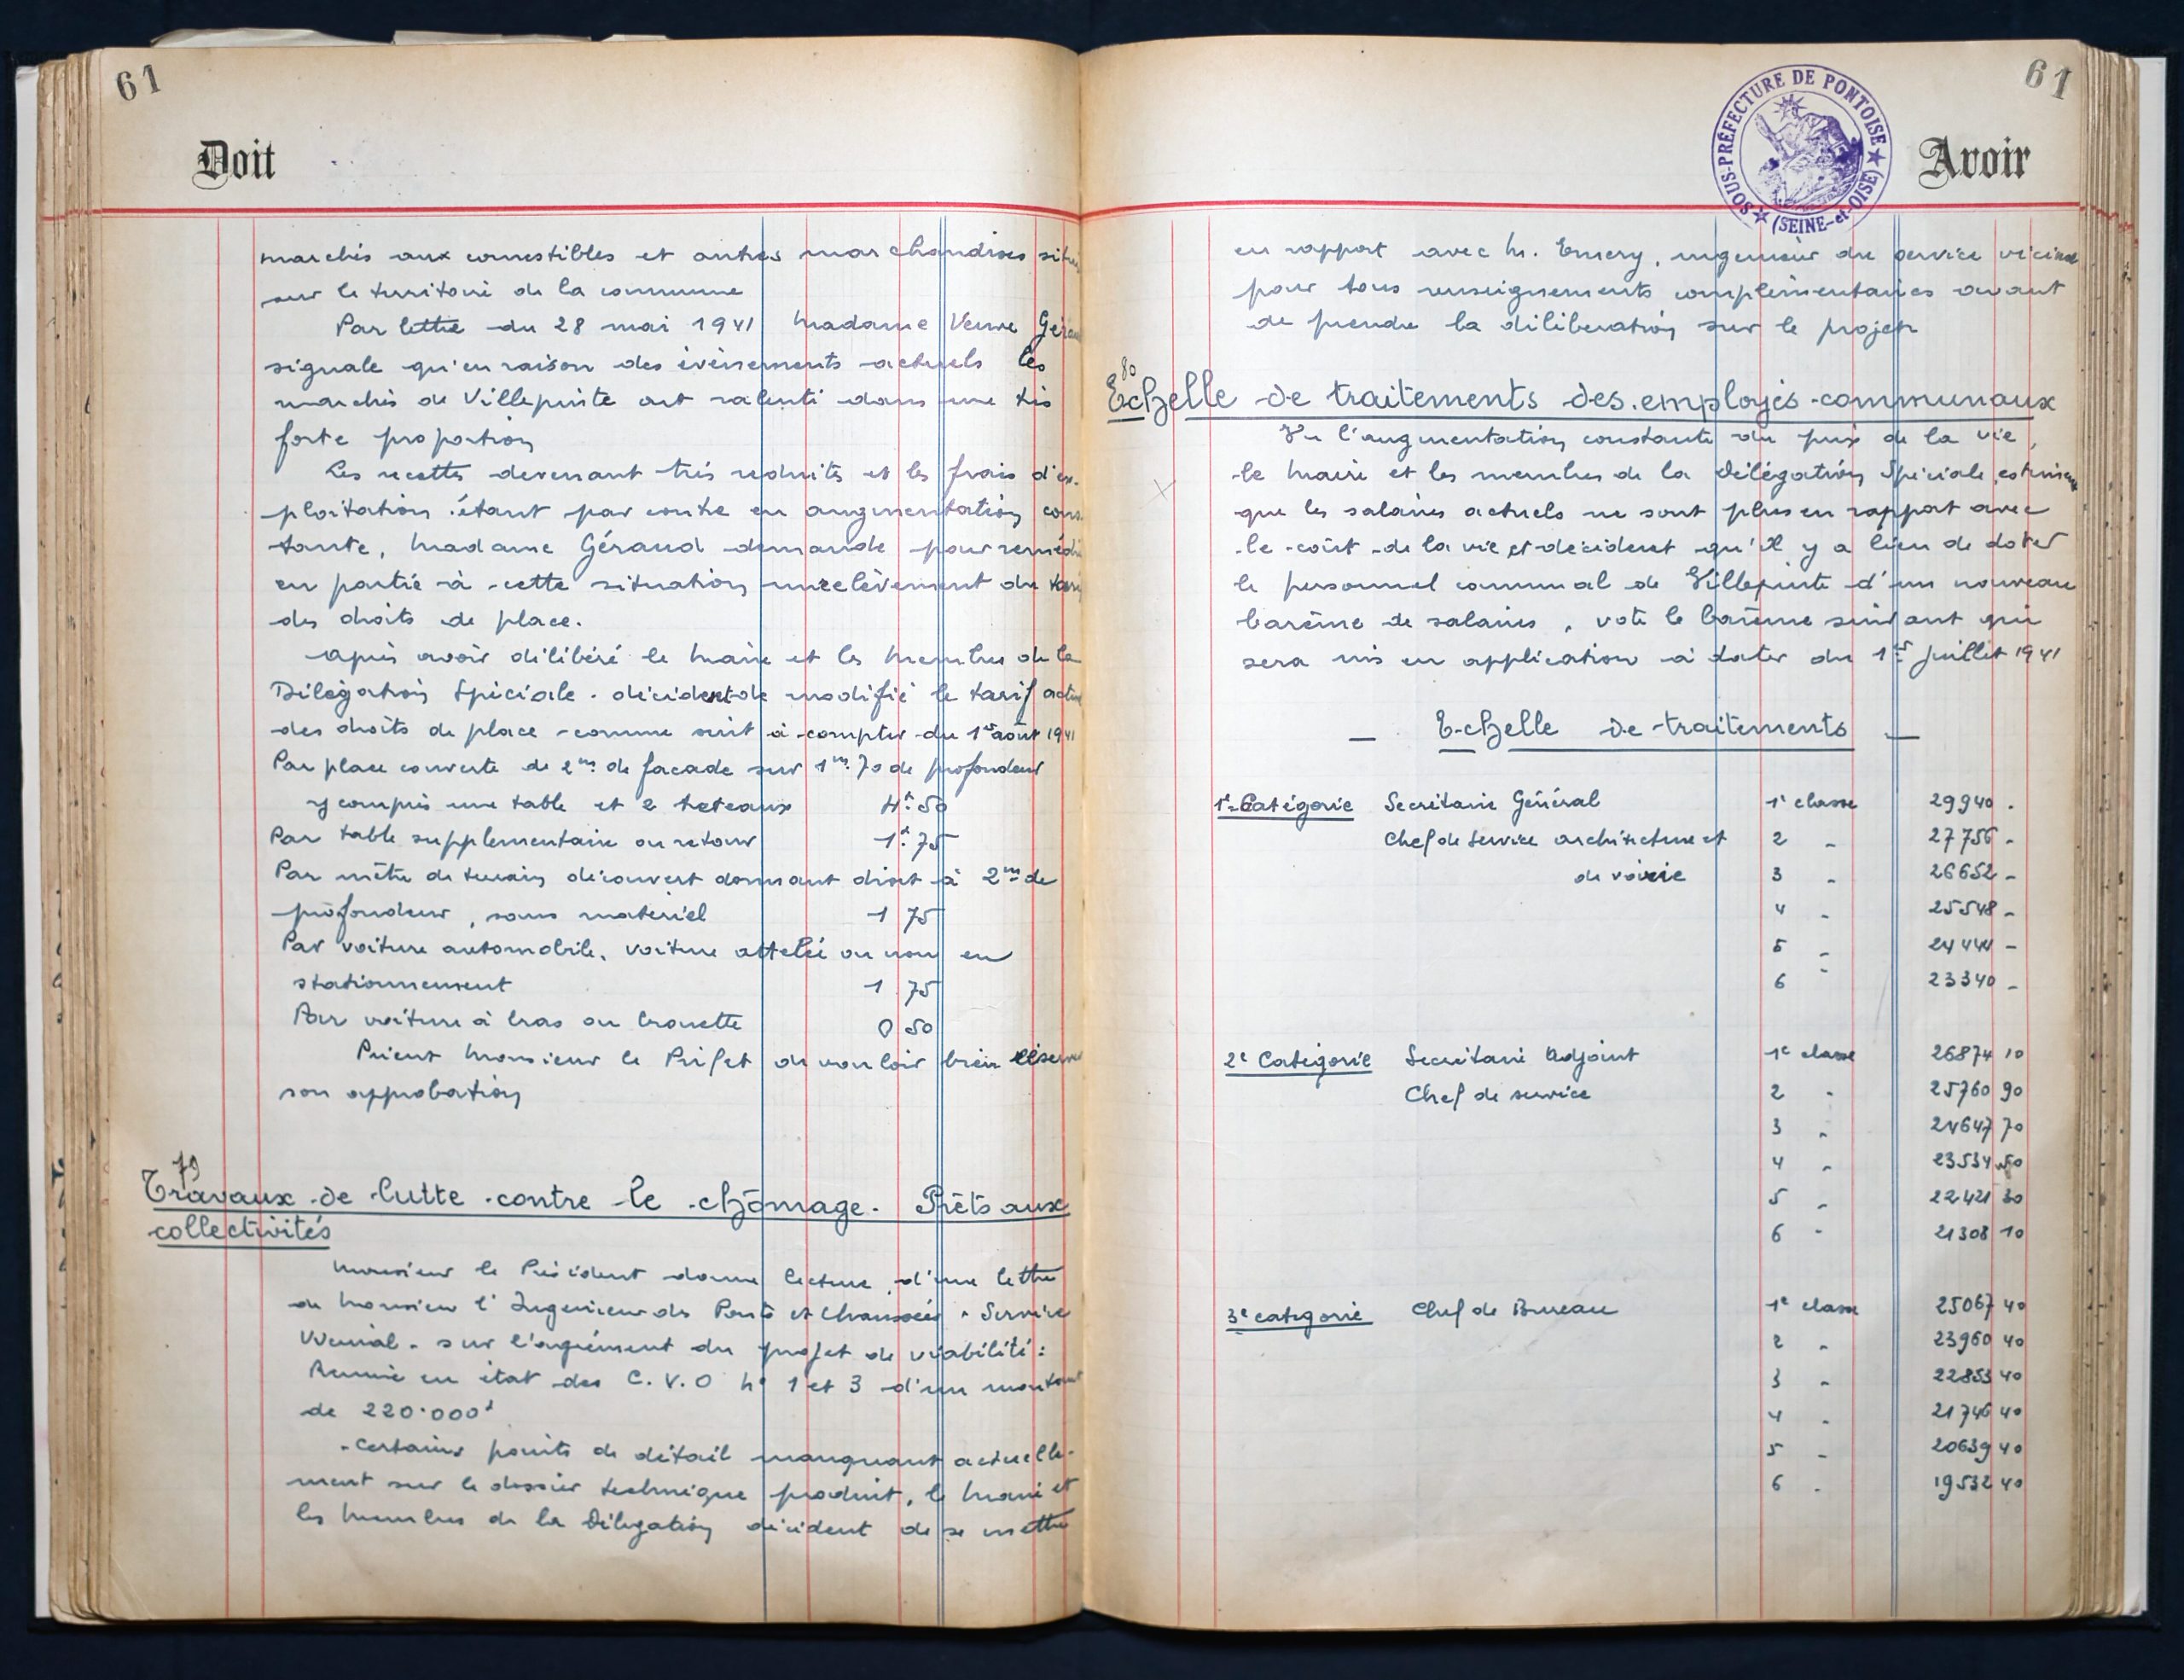 61
Doit
marchés aux comestibles et autres marchandises situés
sur le territoire de la commune
Par lettre du 28 mai 1941 Madame Veuve Géraud
signale qu'en raison des évènements actuels les
marchés de Villepinte ont ralenti dans une très
forte proportion
Les recettes devenant très réduites et les frais d'ex-
ploitation étant par contre en augmentation cons-
tante, Madame Géraud demande pour remédier
en partie à cette situation un relèvement du tarif
des droits de place.
Après avoir délibéré le Maire et les Membres de la
Délégation Spéciale décident de modifié le tarif actuel
des droits de place comme suit à compter du 1er août 1941
Par place couverte de 2m. de facade sur 1m.70 de profondeur
y compris une table et 2 treteaux 4f.50
Par table supplémentaire ou retour 1f.75
Par mètre de terrain découvert donnant droit à 2m de
profondeur, sans matériel 1 75
Par voiture automobile, voiture attelée ou non en
stationnement 1 75
Par voiture à bras ou brouette 0 50
Prient Monsieur le Préfet de vouloir bien réserver
son approbation
79
Travaux de lutte contre le chômage. Prêts aux
collectivités
Monsieur le Président donne lecture d'une lettre
de Monsieur l'Ingénieur des Ponts et Chaussées - Service
Vicinal - sur l'agrément du projet de viabilité:
Remise en état des C.V.O n° 1 et 3 d'un montant
de 220.000f
Certains points de détail manquant actuelle-
ment sur le dossier technique produit, le Maire et
les Membres de la Délégation décident de se mettre
61
Avoir
SOUS-PRÉFECTURE DE PONTOISE
(SEINE-et-OISE)
en rapport avec M. Emery, ingénieur du service vicinal
pour tous renseignements complémentaires avant
de prendre la délibération sur le projet
80
Echelle de traitements des employés communaux
Vu l'augmentation constante du prix de la vie,
le Maire et les membres de la Délégation Spéciale, estiment
que les salaires actuels ne sont plus en rapport avec
le coût de la vie et décident qu'il y a lieu de doter
le personnel communal de Villepinte d'un nouveau
barème de salaires, vote le barème suivant qui
sera mis en application à dater du 1er Juillet 1941
— Echelle de traitements —
1e Catégorie Secrétaire Général 1e classe 29940 -
Chef de Service architecture et 2 - 27756 -
de voirie 3 - 26652 -
4 - 25548 -
5 - 24444 -
6 - 23340 -
2e Catégorie Secrétaire Adjoint 1e classe 26874 10
Chef de service 2 - 25760 90
3 - 24647 70
4 - 23534 50
5 - 22421 30
6 - 21308 10
3e catégorie Chef de Bureau 1e classe 25067 40
2 - 23960 40
3 - 22853 40
4 - 21746 40
5 - 20639 40
6 - 19532 40